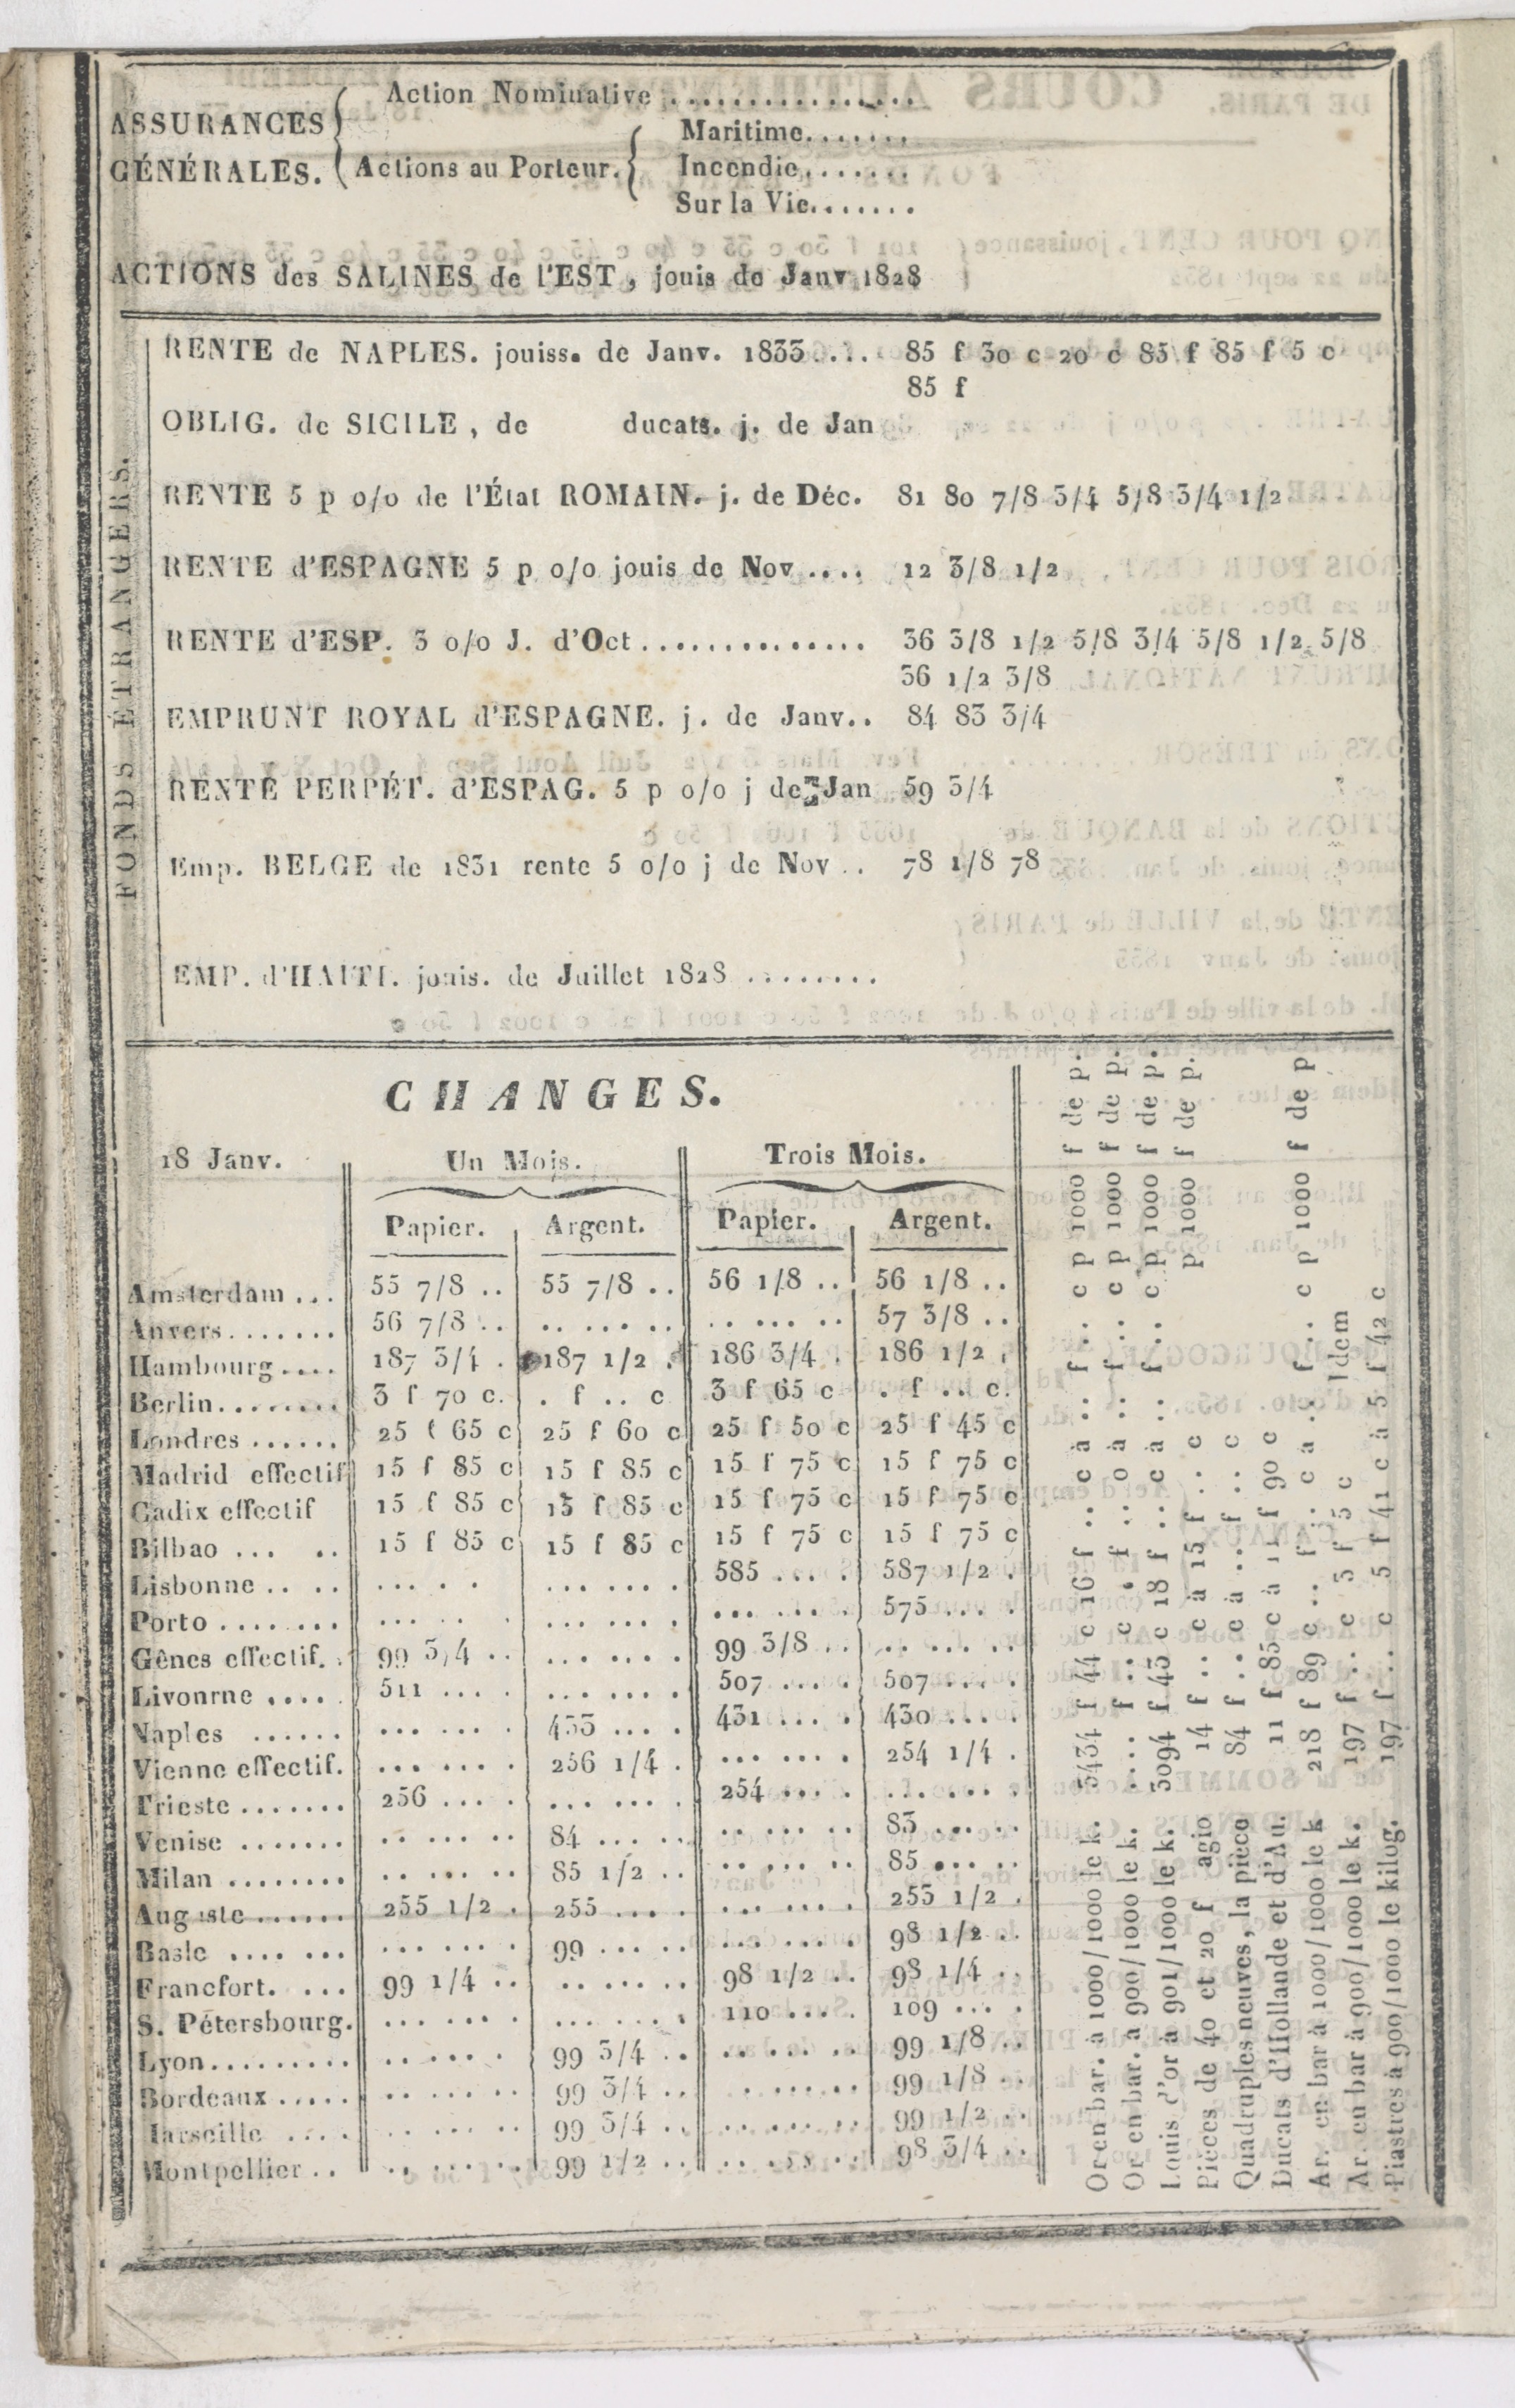 Action Nominative ................
ASSURANCES
Maritime.......
GÉNÉRALES. Actions au Porteur. Incendie.......
Sur la Vie.......
ACTIONS des SALINES de l'EST, jouis de Janv 1828
FONDS ÉTRANGERS.
RENTE de NAPLES. jouiss. de Janv. 1833.... 85 f 30 c 20 c 85 f 85 f 5 c
85 f
OBLIG. de SICILE, de ducats. j. de Jan
RENTE 5 p o/o de l'État ROMAIN. j. de Déc. 81 80 7/8 3/4 5/8 3/4 1/2
RENTE d'ESPAGNE 5 p o/o jouis de Nov .... 12 3/8 1/2
RENTE d'ESP. 3 o/o J. d'Oct.............. 36 3/8 1/2 5/8 3/4 5/8 1/2 5/8
36 1/2 3/8
EMPRUNT ROYAL d'ESPAGNE. j. de Janv.. 84 83 3/4
RENTE PERPÉT. d'ESPAG. 5 p o/o j de Jan 59 3/4
Emp. BELGE de 1831 rente 5 o/o j de Nov .. 78 1/8 78
EMP. d'HAITI. jouis. de Juillet 1828 ........
CHANGES.
18 Janv. Un Mois. Trois Mois.
Papier. Argent. Papier. Argent.
Amsterdam ... 55 7/8 .. 55 7/8 .. 56 1/8 .. 56 1/8 ..
Anvers....... 56 7/8 .. .. ... .. .. ... .. 57 3/8 ..
Hambourg.... 187 3/4 . 187 1/2 . 186 3/4 . 186 1/2 .
Berlin........ 3 f 70 c. . f .. c 3 f 65 c . f .. c.
Londres ...... 25 f 65 c 25 f 60 c 25 f 50 c 25 f 45 c
Madrid effectif 15 f 85 c 15 f 85 c 15 f 75 c 15 f 75 c
Cadix effectif 15 f 85 c 15 f 85 c 15 f 75 c 15 f 75 c
Bilbao ... .. 15 f 85 c 15 f 85 c 15 f 75 c 15 f 75 c
Lisbonne .. .. ... . . ... ... . 585 ... . 587 1/2 .
Porto ....... ... .. . ... ... . ... ... . 575 ... .
Gênes effectif. . 99 3/4 .. ... ... . 99 3/8 .. .. ... ..
Livonrne .... . 511 ... . ... ... . 507 ... . 507 ... .
Naples ...... ... ... . 433 ... . 431 ... . 430 ... .
Vienne effectif. ... ... . 256 1/4 . ... ... . 254 1/4 .
Trieste ....... 256 ... . ... ... . 254 ... . ... ... .
Venise ....... .. ... .. 84 ... .. .. ... .. 83 ... ..
Milan ........ .. ... .. 85 1/2 .. .. ... .. 85 ... ..
Auguste ...... 255 1/2 . 255 ... . ... ... . 253 1/2 .
Basle .... ... ... ... . 99 ... .. ... ... . 98 1/2 ..
Francfort. ... 99 1/4 .. .. ... .. 98 1/2 .. 98 1/4 ..
S. Pétersbourg. ... ... . ... ... . 110 ... . 109 ... .
Lyon......... .. ... . 99 3/4 .. .. ... .. 99 1/8 ..
Bordeaux ..... .. ... .. 99 3/4 .. . ... .. 99 1/8 ..
Marseille .... .. ... .. 99 3/4 .. .. ... .. 99 1/2 ..
Montpellier .. .. ... .. 99 1/2 .. .. ... .. 98 3/4 ..
Or en bar. à 1000/1000 le k. 3434 f 44 c 16 f .. c à .. f .. c p 1000 f de p.
Or en bar. à 900/1000 le k. .... f .. c . f .. o à .. f .. c p 1000 f de p.
Louis d'or à 901/1000 le k. 3094 f 43 c 18 f .. c à .. f .. c p 1000 f de p.
Pièces de 40 et 20 f agio 14 f .. c à 15 f .. c p 1000 f de p.
Quadruples neuves, la pièce 84 f .. c à .. f .. c
Ducats d'Hollande et d'Au. 11 f 85 c à 11 f 90 c
Ar. en bar à 1000/1000 le k 218 f 89 c .. f .. c à .. f .. c p 1000 f de p
Ar. en bar à 900/1000 le k. 197 f .. c 5 f 5 c Idem
Piastres à 900/1000 le kilog. 197 f .. c 5 f 41 c à 5 f 42 c